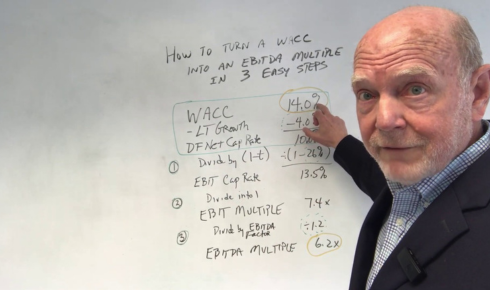 HOW TO TURN A WACC
INTO AN EBITDA MULTIPLE
IN 3 EASY STEPS
WACC 14.0%
- LT Growth -4.0%
DF Net Cap Rate
① Divide by (1-t) ÷(1-26%)
EBIT Cap Rate 13.5%
② Divide into 1
EBIT MULTIPLE 7.4x
③ Divide by EBITDA Factor ÷1.2
EBITDA MULTIPLE 6.2x